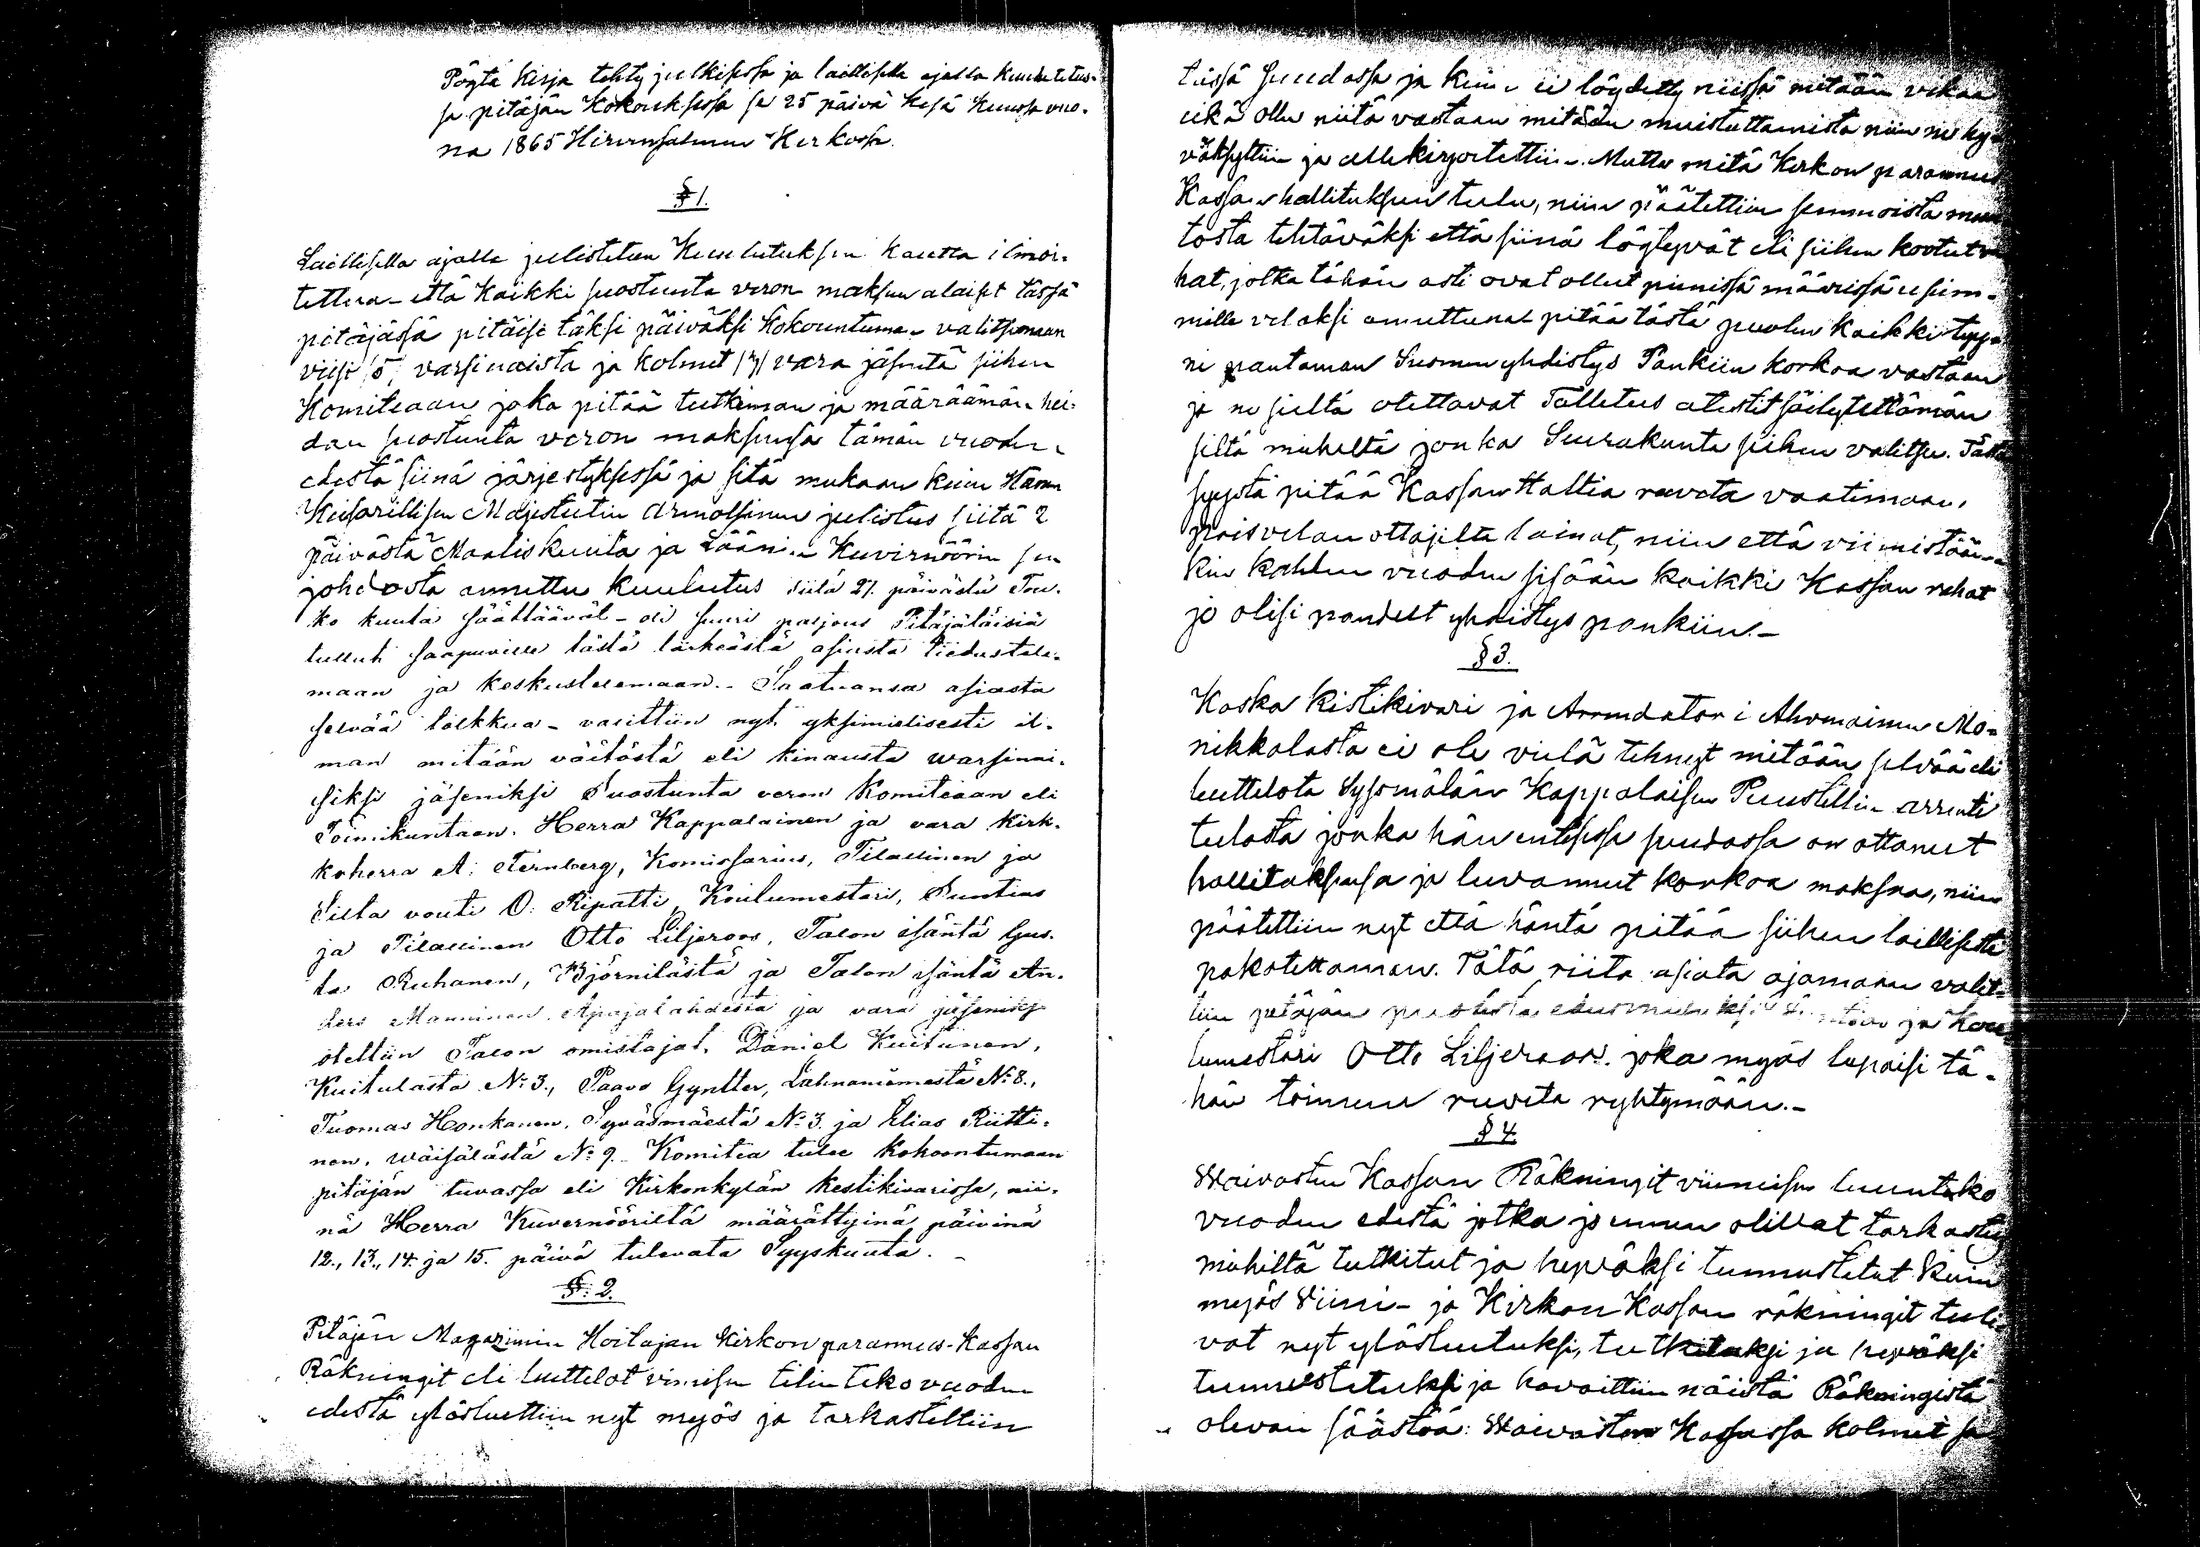 Pöytä kirja tehty julkisessa ja laillisella ajalla kuulutetus-
sa pitäjän Kokouksessa se 25 päivä kesä kuussa vuo-
na 1865 Hirvensalmen Kirkossa.
§ 1.
Laillisella ajalla julistetun Kuulutuksen kautta ilmoi-
tettuna – että kaikki suostunta veron maksun alaiset tässä
pitäjässä pitäisi täksi päiväksi kokountuman valitsemaan
viisi /5/ varsinaista ja kolmet /3/ vara jäsentä siihen
Komiteaan joka pitää tutkiman ja määräämän hei-
dan suostunta veron maksunsa tämän vuoden
edestä siinä järjestyksessä ja sitä mukaan kuin Hänen
Keisarillisen Majestetin Armollinen julistus siitä 2
päivästä Maaliskuuta ja Läänin Kuvernöörin sen
johdosta annettu kuulutus siitä 27. päivästä Tou-
ko kuuta säättäävät – oli suuri paljous Pitäjäläisiä
tullut saapuville tästä tärkeästä asiasta tiedustele-
maan ja keskustelemaan. – Saatuansa asiasta
selvää tolkkua – valittiin nyt yksimielisesti il-
man mitään väitöstä eli kinausta warsinai-
siksi jäseniksi Suostunta veron Komiteaan eli
Toimikuntaan. Herra Kappalainen ja vara kirk-
koherra A: Sternberg, Komissarius, Tilallinen ja
Silta vouti O: Ripatti, Koulumestari, Suntius
ja Tilallinen Otto Liljeroos, Talon isäntä Gus-
ta Ruhanen, Björnilästä ja Talon isäntä An-
ders Manninen, Apajalahdesta ja vara jäseniksi
otettiin Talon omistajat. Daniel Kuitunen,
Kuitulasta No 3., Paavo Gyntter, Lahnaniemestä No 8.,
Tuomas Honkanen, Syväsmäestä No 3. ja Elias Riitti-
nen, Wäisälästä No 9. Komitea tulee kokoontumaan
pitäjän tuvassa eli Kirkonkylän kestikivarissa, nii-
nä Herra Kuvernööriltä määrättyinä päivinä
12., 13., 14. ja 15. päivä tulevata Syyskuuta. –
§. 2.
Pitäjän Magazinin Hoitajan Kirkon parannus-Kassan
Räkningit eli luettelot viimisen tilin teko vuoden
edestä ylösluettiin nyt myös ja tarkasteltiin
tässä suudassa ja kuin ei löydetty niissä mitään vikaa
eikä ollu niitä vastaan mitään muistuttamista niin ne hy-
väksyttiin ja allekirjoitettiin. Mutta mitä Kirkon parannus
Kassan hallituksen tulee, niin päätettiin semmoista muu
tosta tehtäväksi että siinä löytyvät eli siihen kootut ra
hat, jotka tähän asti ovat ollut pienissä määrissä usim-
mille velaksi annettunat pitää tästä puolen kaikki tyy-
ni pantaman Suomen yhdistys Pankiin korkoa vastaan
ja ne sieltä otettavat Talletus atestit säilytettämän
siltä mieheltä jonka Seurakunta siihen valitsee. Tästä
syystä pitää Kassan Haltia ruveta vaatimaan,
pois velan ottajilta lainat, niin että viimistään-
kin kahden vuoden sisään kaikki Kassan rahat
jo olisi pandut yhdistys pankiin. –
§ 3.
Koska kistikivari ja Arrendatori Ahvenainen Mo-
nikkalasta ei ole vielä tehnyt mitään selvää eli
luettelota Sysomälän Kappalaisen Puustellin arrenti
tulosta jonka hän entisessä suudassa on ottanut
hallituksensa ja luvannut korkoa maksaa, niin
päätettiin nyt että häntä pitää siihen laillisesti
pakotettaman. Tätä riita asiata ajamaan valit-
tiin pitäjän puolesta edusmieheksi Suntius ja Kou-
lumestari Otto Liljeroos. joka myös lupaisi tä-
hän toimeen ruveta ryhtymään. –
§ 4.
Waivasten Kassan Räkningit viimeisen luunteko
vuoden edestä jotka jo ennen olivat tarkastus
miehiltä tutkitut ja hyväksi tunnustetut kuin
myös Viini- ja Kirkon Kassan räkningit tuli-
vat nyt ylösluetuksi, tutkituksi ja hyväksi
tunnustetuksi ja havaittiin näistä Räkningistä
olevan säästöä: Waivasten Kassassa kolmet sa